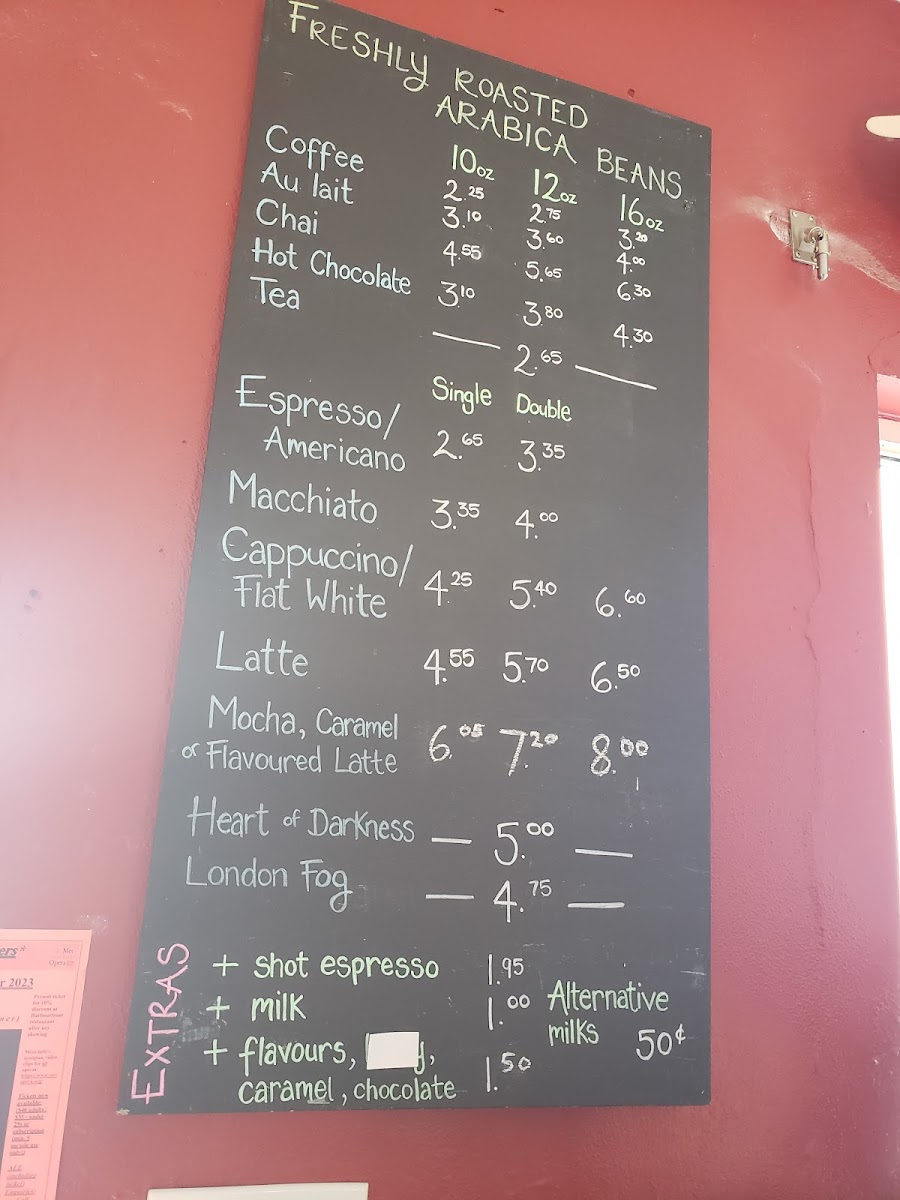 FRESHLY ROASTED
ARABICA BEANS
10oz 12oz 16oz
Coffee 2.25 2.75 3.20
Au lait 3.10 3.60 4.00
Chai 4.55 5.65 6.30
Hot Chocolate 3.10 3.80 4.30
Tea — 2.65 —
Single Double
Espresso/
Americano 2.65 3.35
Macchiato 3.35 4.00
Cappuccino/
Flat White 4.25 5.40 6.60
Latte 4.55 5.70 6.50
Mocha, Caramel
or Flavoured Latte 6.05 7.20 8.00
Heart of Darkness — 5.00 —
London Fog — 4.75 —
EXTRAS
+ shot espresso 1.95
+ milk 1.00
+ flavours,
caramel, chocolate 1.50
Alternative
milks 50¢
r 2023
Present ticket
for 10%
discount at
restaurant
after any
showing